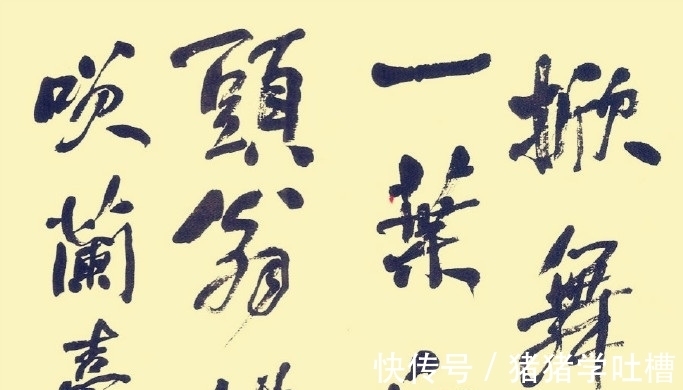 掀舞
一葉
頭翁
咲蘭臺
快传号 / 猪猪学吐槽